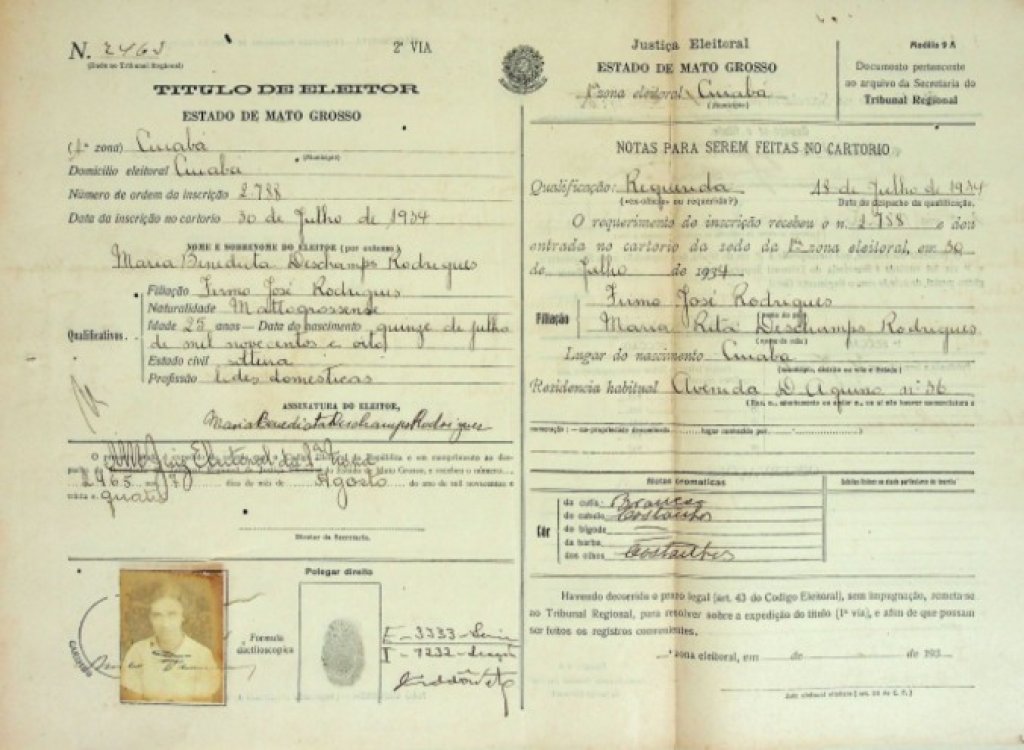 N. 2463
(Dado no Tribunal Regional)
2ª VIA
TITULO DE ELEITOR
ESTADO DE MATO GROSSO
(1ª zona) Cuiabá
(Municipio)
Domicilio eleitoral Cuiabá
Número de ordem da inscrição 2.788
Data da inscrição no cartorio 30 de Julho de 1934
NOME E SOBRENOME DO ELEITOR (por extenso)
Maria Benedicta Deschamps Rodrigues
Qualificativos.
Filiação Firmo José Rodrigues
Naturalidade Mattogrossense
Idade 25 anos — Data do nascimento quinze de julho
de mil novecentos e oito
Estado civil solteira
Profissão lides domesticas
ASSINATURA DO ELEITOR,
Maria Benedicta Deschamps Rodrigues
O Juiz Eleitoral da 1ª zona
do Estado de Mato Grosso, e recebeu o numero
2965 dias do mês de Agosto do ano de mil novecentos e
trinta e quatro
Diretor da Secretaria.
Polegar direito
CARIMBO
Formula
dactiloscopica
E - 3333 - Serie
I - 4232 - Secção
Justiça Eleitoral
ESTADO DE MATO GROSSO
1ª zona eleitoral Cuiabá
(Municipio)
Modêlo 9 A
Documento pertencente
ao arquivo da Secretaria do
Tribunal Regional
NOTAS PARA SEREM FEITAS NO CARTORIO
Qualificação: Requerida 18 de Julho de 1934
(«ex-oficio» ou requerida?) Data do despacho da qualificação.
O requerimento de inscrição recebeu o n. 2.788 e deu
entrada no cartorio da sede da 1ª zona eleitoral, em 30
de Julho de 1934.
Filiação
Firmo José Rodrigues
(nome do pai)
Maria Rita Deschamps Rodrigues
(nome da mãe)
Lugar do nascimento Cuiabá
(municipio, distrito ou vila e Estado)
Residencia habitual Avenida D. Aquino nº 36
Notas cromaticas
Côr
da cutis Branca
do cabelo Castanhos
do bigode
da barba
dos olhos Castanhos
Havendo decorrido o prazo legal (art. 43 do Codigo Eleitoral), sem impugnação, remeta-se
ao Tribunal Regional, para resolver sobre a expedição do titulo (1ª via), e afim de que possam
ser feitos os registros convenientes.
ª zona eleitoral, em de de 193